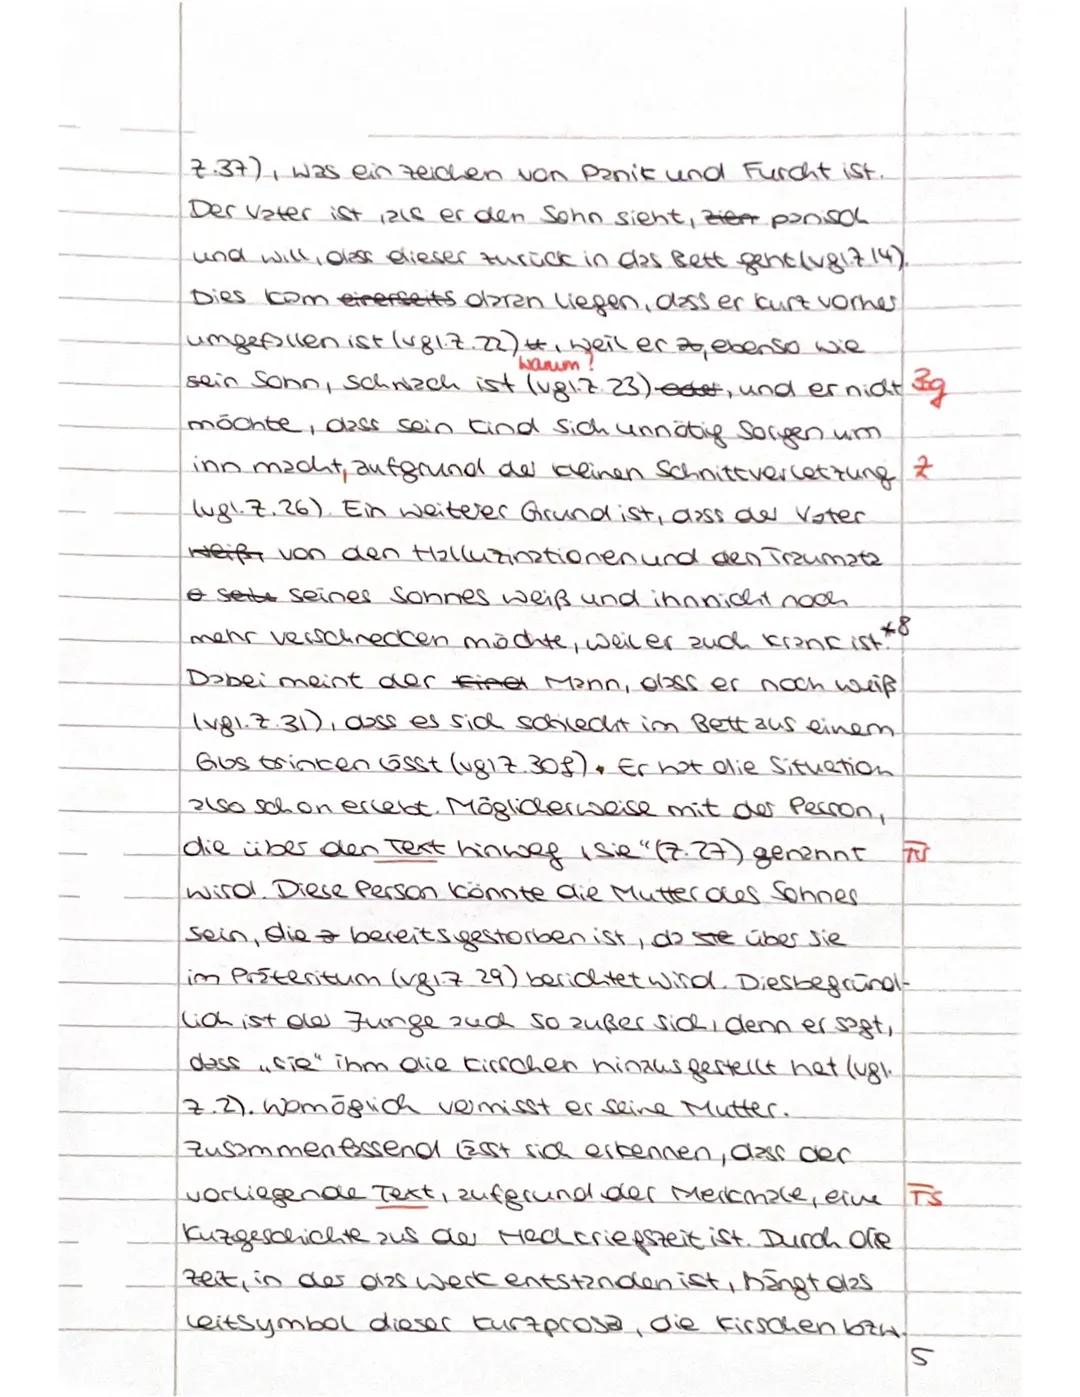 Z.37), was ein Zeichen von Panik und Furcht ist.
Der Vater ist, als er den Sohn sieht, panisch
und will, dass dieser zurück in das Bett geht (vgl. Z 14).
Dies kann einerseits daran liegen, dass er kurz vorher
umgefallen ist (vgl. Z. 22), weil er, ebenso wie
warum?
sein Sohn, schwach ist (vgl. Z. 23) oder, und er nicht Bg
möchte, dass sein Kind sich unnötig Sorgen um
ihn macht, aufgrund der kleinen Schnittverletzung Z
(vgl. Z. 26). Ein weiterer Grund ist, dass der Vater
weiß, von den Halluzinationen und den Traumata
seines Sohnes weiß und ihn nicht noch
mehr verschrecken möchte, weil er auch krank ist. *8
Dabei meint der Mann, dass er noch weiß
(vgl. Z. 31), dass es sich schlecht im Bett aus einem
Glas trinken lässt (vgl Z. 30f). Er hat die Situation
also schon erlebt. Möglicherweise mit der Person,
die über den Text hinweg „sie" (Z. 27) genannt
wird. Diese Person könnte die Mutter des Sohnes
sein, die bereits gestorben ist, da sie über sie
im Präteritum (vgl. Z 29) berichtet wird. Diesbegründ-
lich ist der Junge auch so außer sich, denn er sagt,
dass „sie" ihm die Kirschen hinausgestellt hat (vgl.
Z. 2). Womöglich vermisst er seine Mutter.
Zusammenfassend lässt sich erkennen, dass der
vorliegende Text, aufgrund der Merkmale, eine TS
Kuzgeschichte aus der Nachkriegszeit ist. Durch die
Zeit, in der das Werk entstanden ist, hängt das
Leitsymbol dieser Kurzprosa, die Kirschen bzw.
5